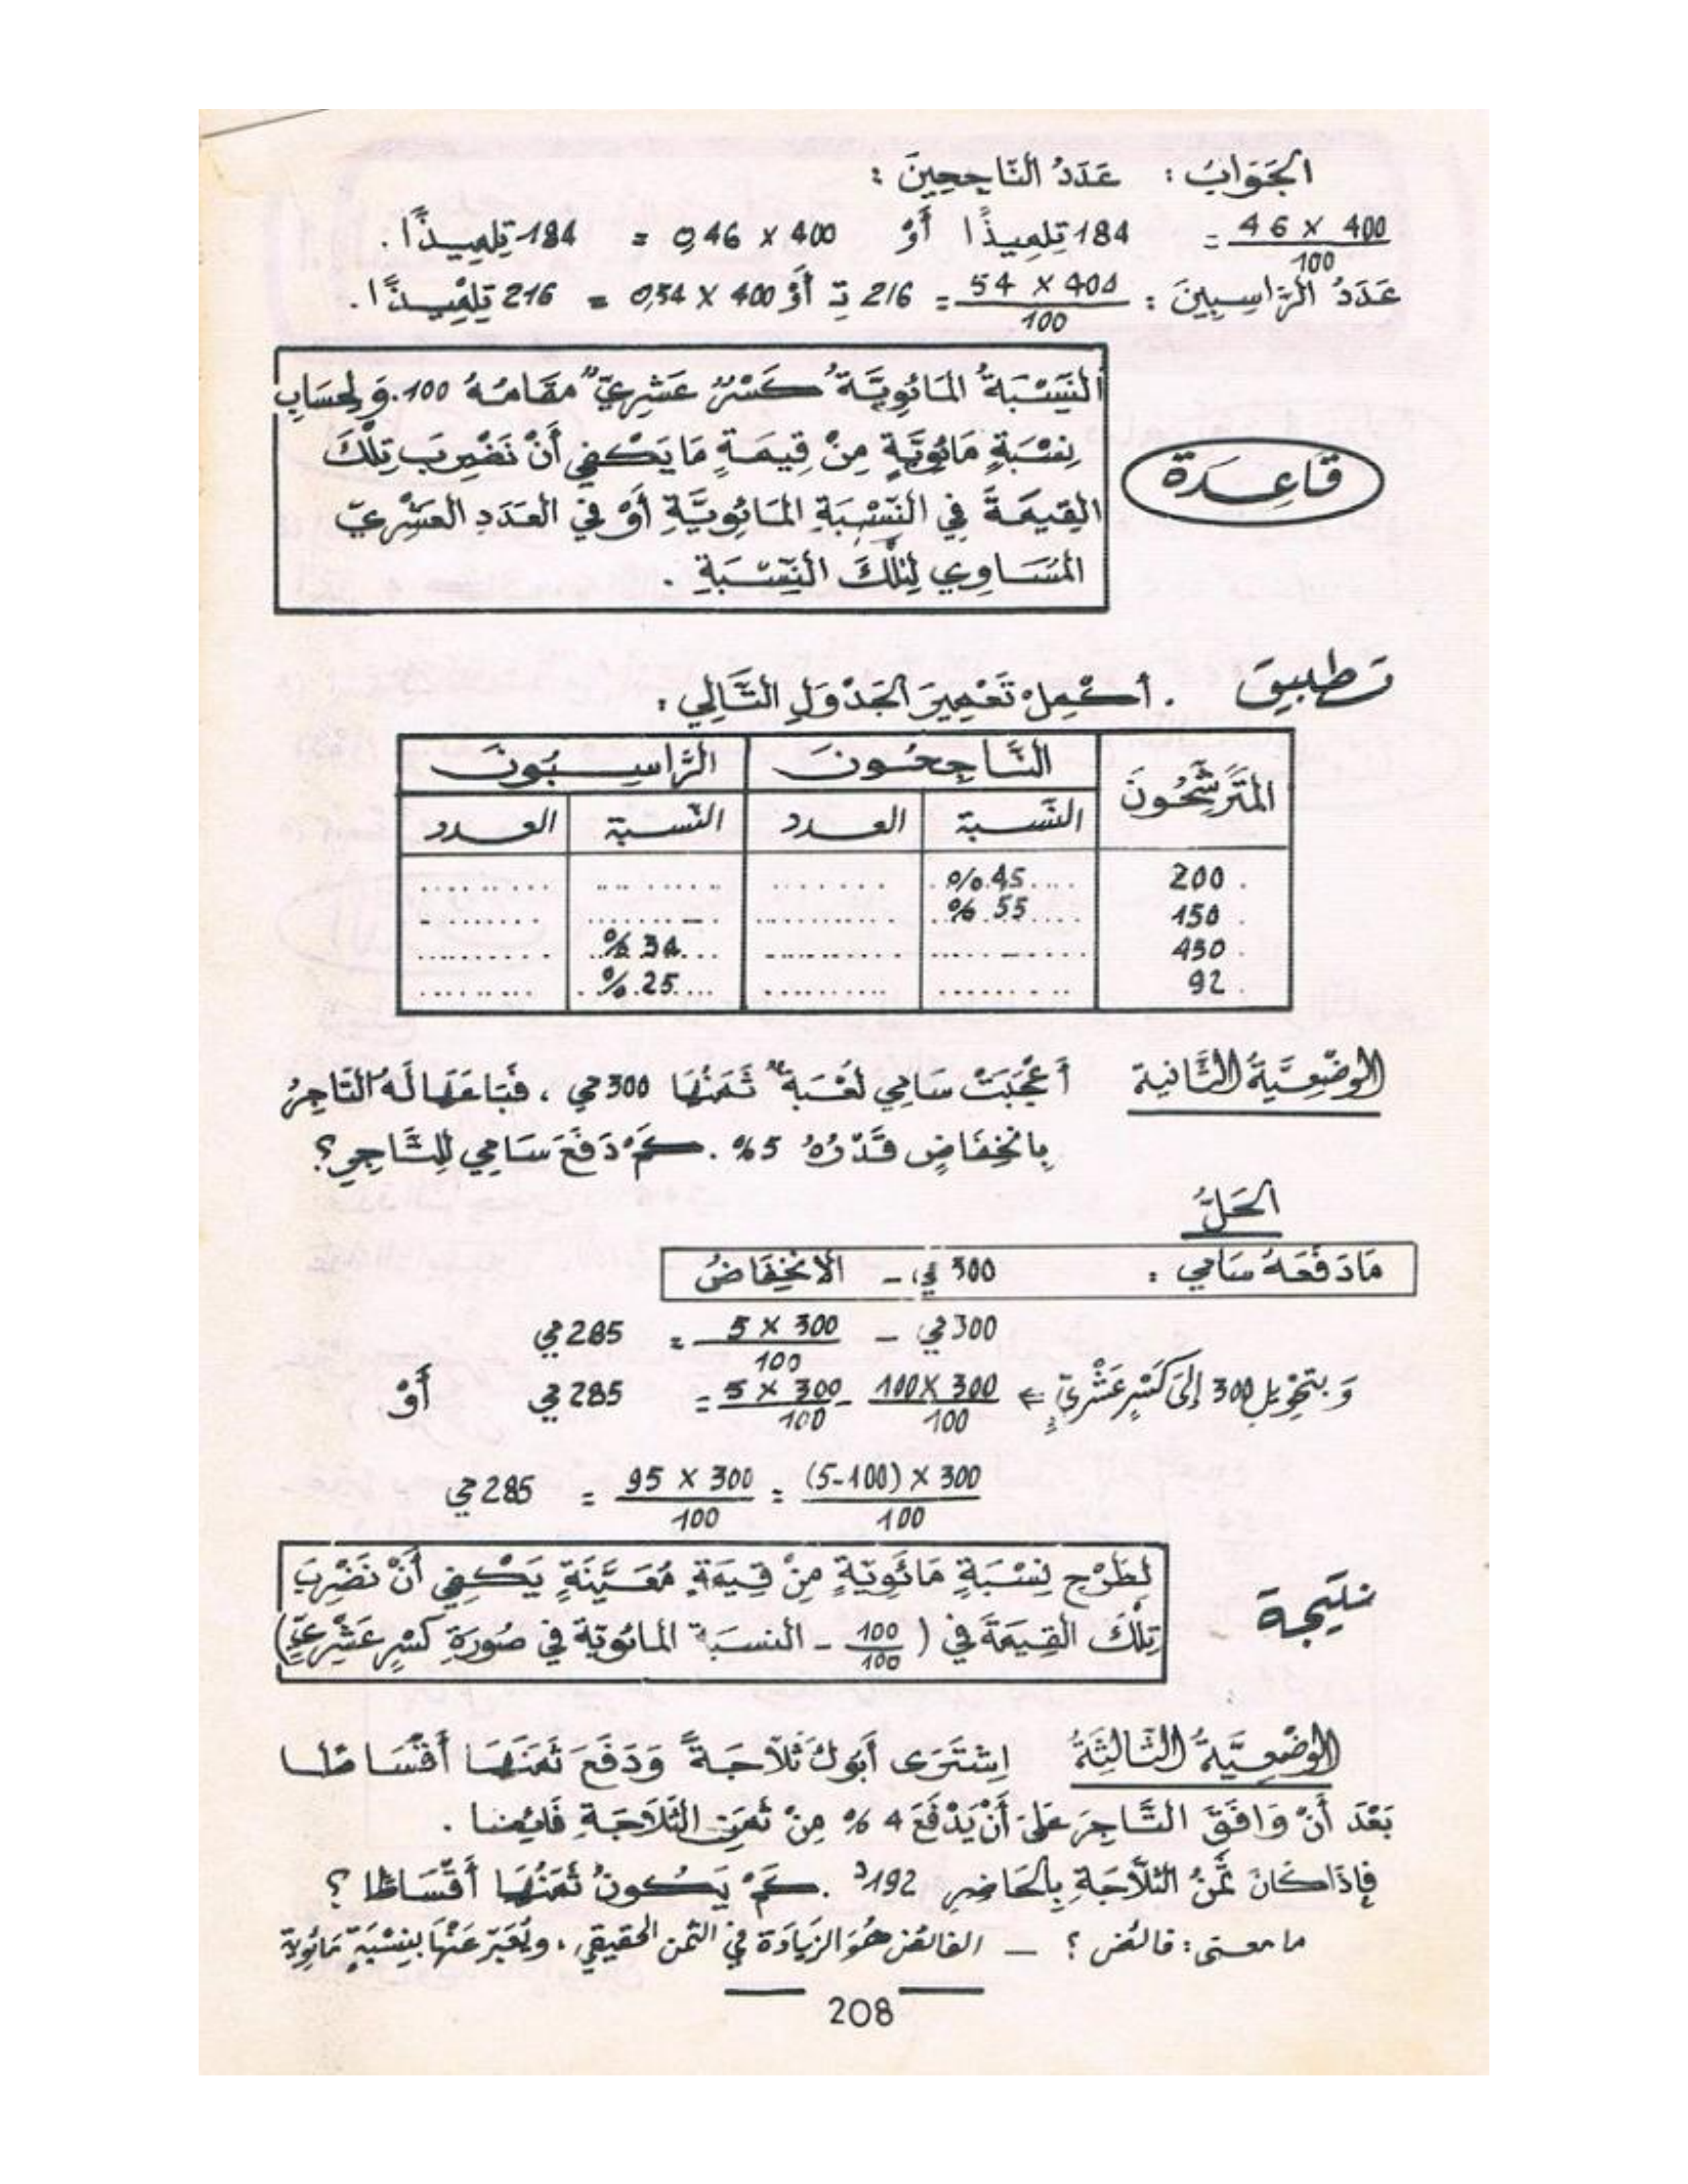 الجَوَابُ : عَدَدُ النَّاجِحِينَ :
400 × 46 / 100 = 184 تِلْمِيذًا أَوْ 400 × 0,46 = 184 تِلْمِيذًا .
عَدَدُ الرَّاسِبِينَ : 400 × 54 / 100 = 216 تِ أَوْ 400 × 0,54 = 216 تِلْمِيذًا .
النِّسْبَةُ المَائُوِيَّةُ كَسْرٌ عَشْرِيٌّ مَقَامُهُ 100. وَلِحِسَابِ
نِسْبَةٍ مَائُوِيَّةٍ مِنْ قِيمَةٍ مَا يَكْفِي أَنْ نَضْرِبَ تِلْكَ
قَاعِدَة
القِيمَةَ فِي النِّسْبَةِ المَائُوِيَّةِ أَوْ فِي العَدَدِ العَشْرِيِّ
المُسَاوِي لِتِلْكَ النِّسْبَةِ .
تطبيق . أَكْمِلْ تَعْمِيرَ الجَدْوَلِ التَّالِي :
المُتَرَشِّحُونَ النَّاجِحُونَ الرَّاسِبُونَ
النّسبة العدد النّسبة العدد
200 45 % ........ ........ ........
150 55 % ........ ........ ........
450 ........ ........ 34 % ........
92 ........ ........ 25 % ........
الوَضْعِيَّةُ الثَّانِية أَعْجَبَتْ سَامِي لُعْبَةٌ ثَمَنُهَا 300 مي ، فَبَاعَهَا لَهُ التَّاجِرُ
بِانْخِفَاضٍ قَدْرُهُ 5 % . كَمْ دَفَعَ سَامِي لِلتَّاجِرِ ؟
الحَلُّ
مَا دَفَعَهُ سَامِي : 300 مي - الاِنْخِفَاضُ
300 مي - 300 × 5 / 100 = 285 مي
وَ بِتَحْوِيلِ 300 إِلَى كَسْرٍ عَشْرِيٍّ ⇐ 300 × 100 / 100 - 300 × 5 / 100 = 285 مي أَوْ
300 × (100-5) / 100 = 300 × 95 / 100 = 285 مي
لِطَرْحِ نِسْبَةٍ مَائُوِيَّةٍ مِنْ قِيمَةٍ مُعَيَّنَةٍ يَكْفِي أَنْ نَضْرِبَ
نتيجة
تِلْكَ القِيمَةَ فِي ( 100 / 100 - النسبة المائوية فِي صُورَةِ كَسْرٍ عَشْرِيٍّ)
الوَضْعِيَّةُ الثَّالِثَةُ اِشْتَرَى أَبُوكَ ثَلَّاجَةً وَدَفَعَ ثَمَنَهَا أَقْسَاطًا
بَعْدَ أَنْ وَافَقَ التَّاجِرَ عَلَى أَنْ يَدْفَعَ 4 % مِنْ ثَمَنِ الثَّلَّاجَةِ فَائِضًا .
فَإِذَا كَانَ ثَمَنُ الثَّلَّاجَةِ بِالحَاضِرِ 192 د . كَمْ يَكُونُ ثَمَنُهَا أَقْسَاطًا ؟
ما معنى : فائض ؟ - الفائض هُوَ الزِّيَادَة فِي الثّمن الحقيقي ، ويُعَبّر عَنْهَا بِنِسْبَةٍ مَائُوِيّة
208